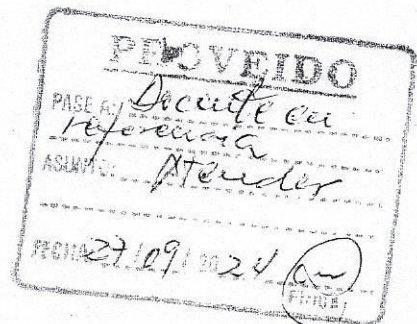 PROVEIDO
PASE A: Docente en
referencia
ASUNTO: Atender
FECHA 27/09/2024
FIRMA